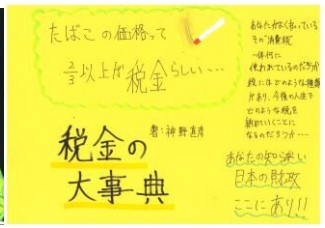 たばこの価格って
2/3以上が税金らしい…
税金の
大事典
著：神野直彦
あなたがよく払っている
その"消費税"
一体何に
使われているのだろうか
税にはどのような種類
があり、今後の人生で
どのような税を
納めていくことに
なるのだろうか…
あなたの知らない
日本の財政
ここにあり!!